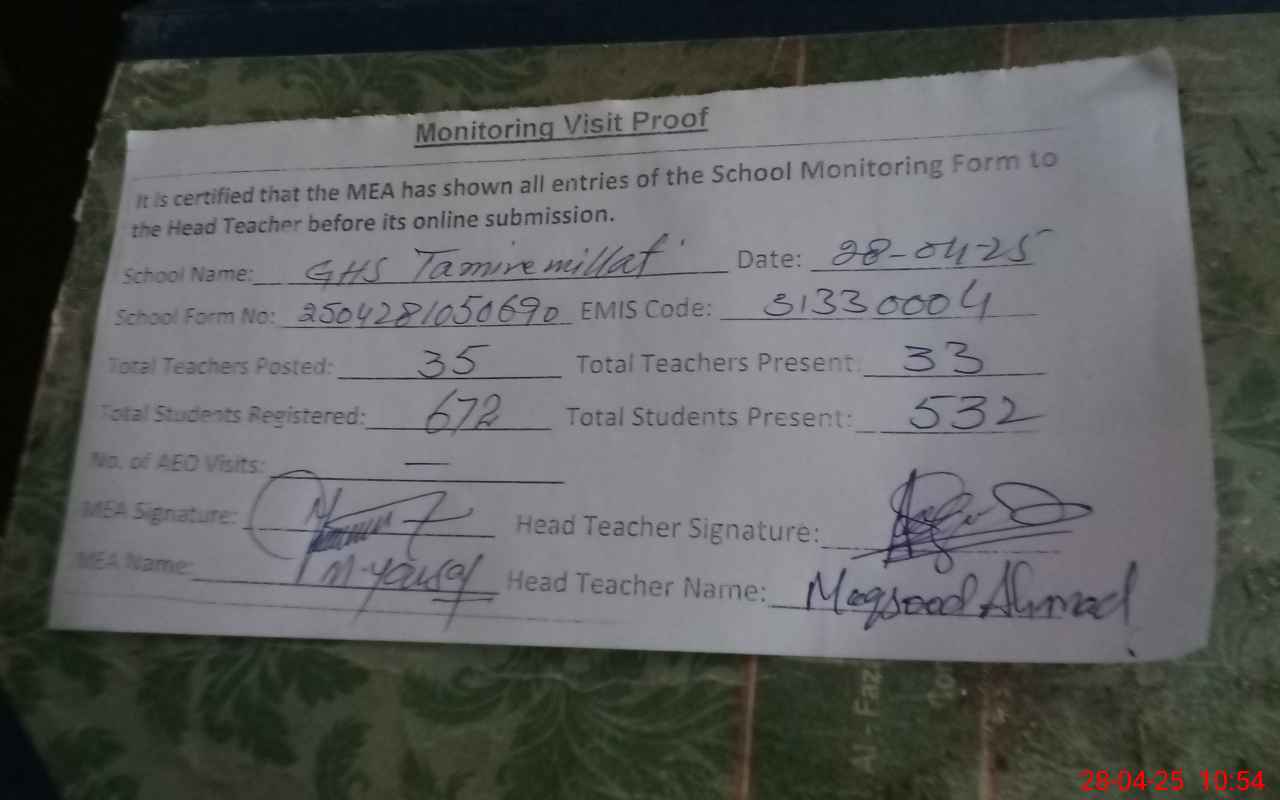 Monitoring Visit Proof
It is certified that the MEA has shown all entries of the School Monitoring Form to
the Head Teacher before its online submission.
School Name: GHS Tamiremillat Date: 28-04-25
School Form No: 2504281050690 EMIS Code: 31330004
Total Teachers Posted: 35 Total Teachers Present: 33
Total Students Registered: 672 Total Students Present: 532
No. of AEO Visits: —
MEA Signature: Head Teacher Signature:
MEA Name: M-Yousaf Head Teacher Name: Maqsood Ahmad
Al-Faz
28-04-25 10:54